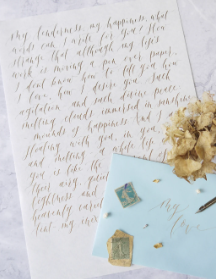 My tenderness, my happiness, what
words can I write for you? How
strange that although my life's
work is moving a pen over paper,
I don't know how to tell you how
I love, how I desire you. Such
agitation and such divine peace:
melting clouds immersed in sunshine
mounds of happiness. And I am
floating with you, in you, aflame
and melting
you is like the
their airy,
lightness and
heavenly
my
love